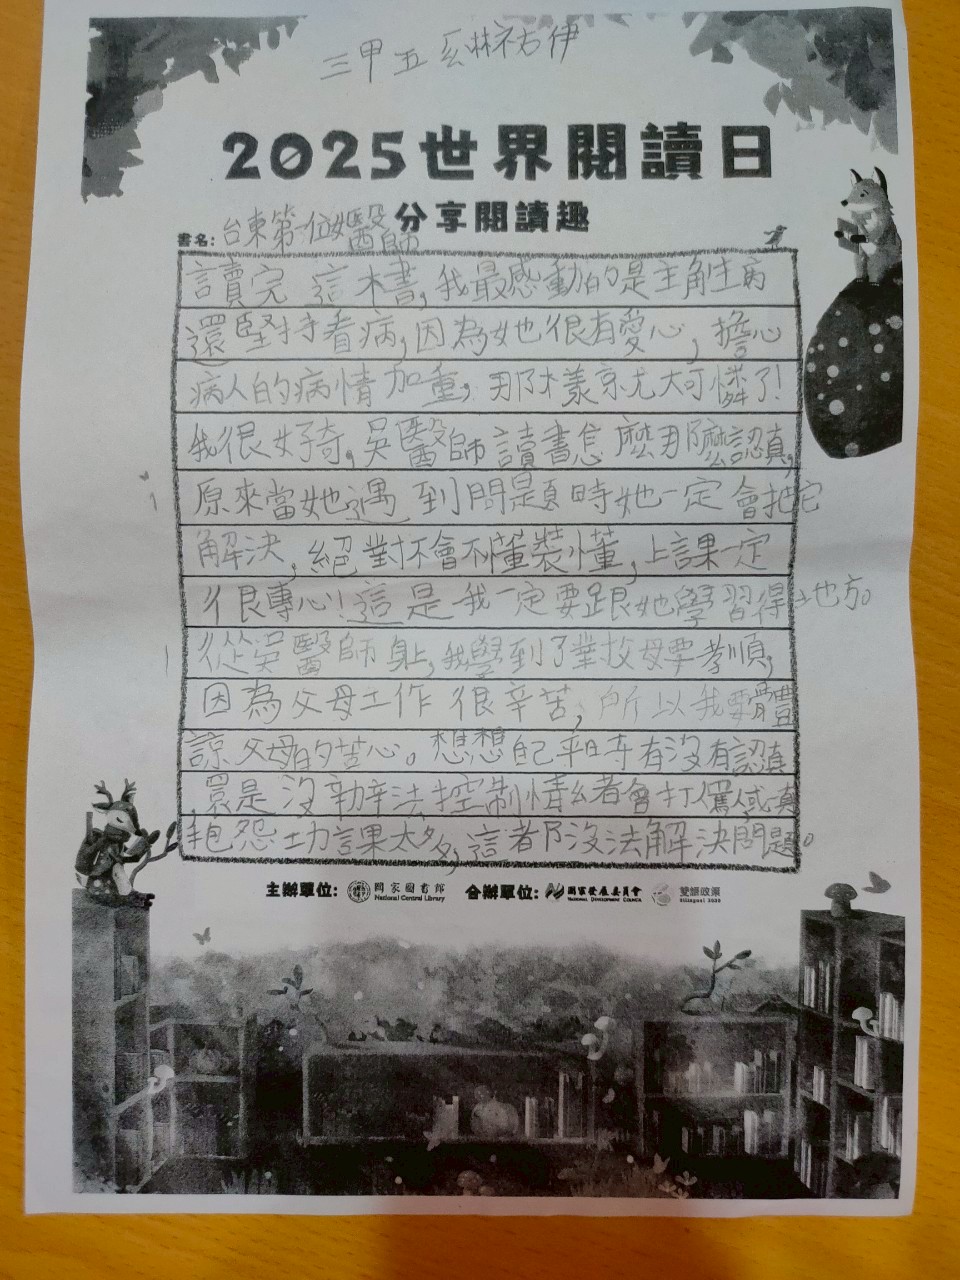 三甲 五 糹林祐伊
2025世界閱讀日
分享閱讀趣
書名：台東第一位女醫師
讀完這本書，我最感動的是主角生病
還堅持看病，因為她很有愛心，擔心
病人的病情加重，那樣就太可憐了！
我很好奇，吳醫師讀書怎麼那麼認真，
原來當她遇到問題時她一定會把它
解決，絕對不會不懂裝懂，上課一定
很專心！這是我一定要跟她學習得地方。
從吳醫師身上，我學到了對父母要孝順，
因為父母工作很辛苦，所以我要體
諒父母的苦心。想想自己平時有沒有認真
還是沒辦法控制情緒會打人罵人或
抱怨功課太多，這都沒法解決問題。
主辦單位：國家圖書館 National Central Library 合辦單位：國家發展委員會 NATIONAL DEVELOPMENT COUNCIL 雙語政策 Bilingual 2030